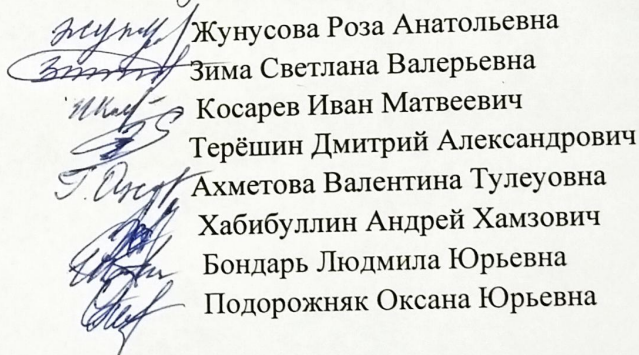 Жунусова Роза Анатольевна
Зима Светлана Валерьевна
Косарев Иван Матвеевич
Терёшин Дмитрий Александрович
Ахметова Валентина Тулеуовна
Хабибуллин Андрей Хамзович
Бондарь Людмила Юрьевна
Подорожняк Оксана Юрьевна